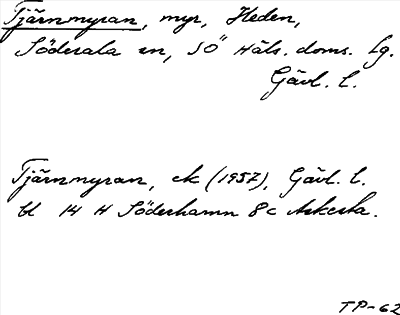 Tjärnmyran, myr, Heden,
Söderala sn, SÖ Häls. doms. lg.
Gävl. l.
Tjärnmyran, ek (1957), Gävl. l.
bl 14 H Söderhamn 8c Askesta.
TP-62